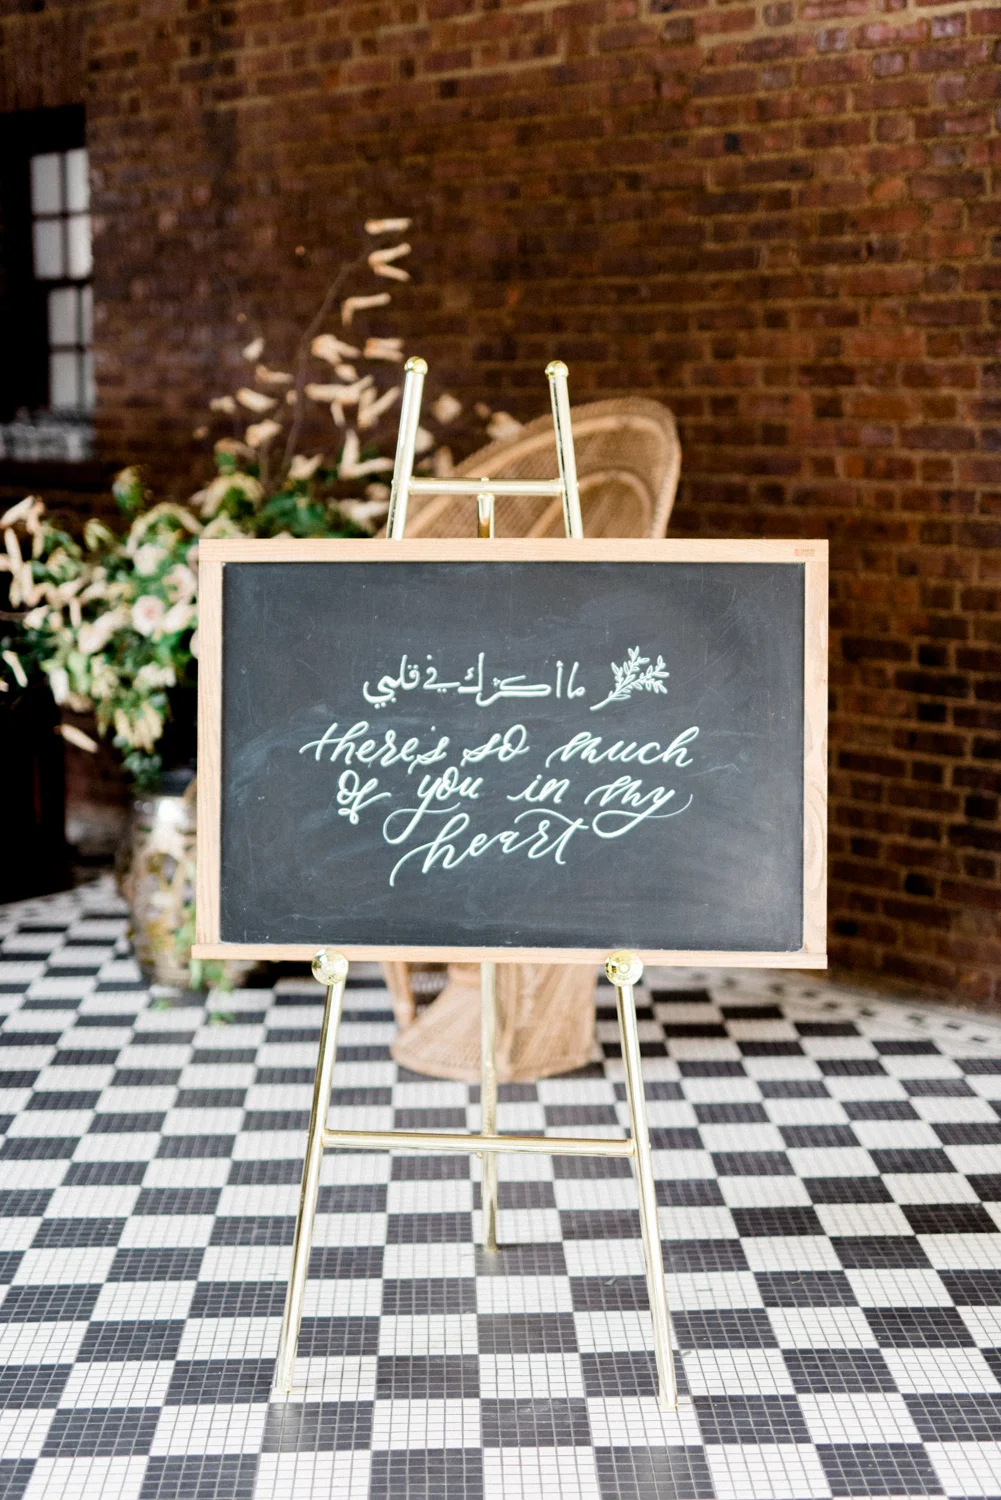 ما أكثرك في قلبي
there's so much
of you in my
heart